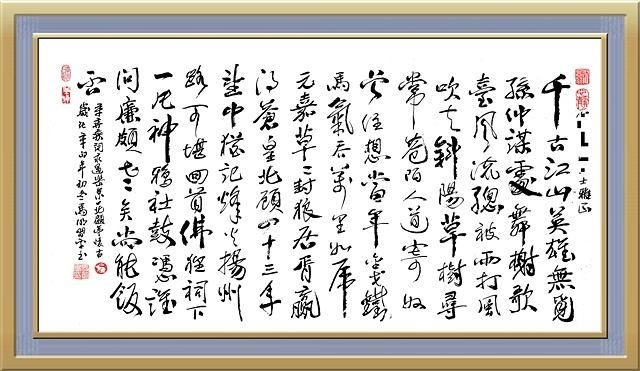 士雅正
千古江山英雄無覓
孫仲謀處舞榭歌
臺風流總被雨打風
吹去斜陽草樹尋
常巷陌人道寄奴
曾住想當年金戈鐵
馬氣吞萬里如虎
元嘉草草封狼居胥贏
得蒼皇北顧四十三年
望中猶記烽火揚州
路可堪回首佛狸祠下
一片神鴉社鼓憑誰
問廉頗老矣尚能飯
否
辛弃疾词永遇樂京口北顧亭懷古
歲次辛卯年初冬馬